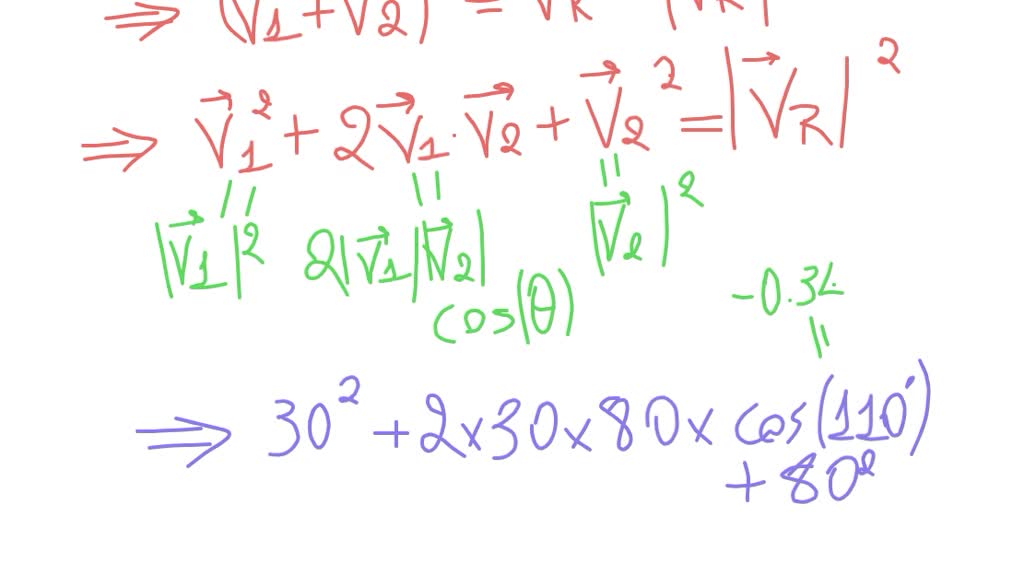 ⇒ (V⃗1 + V⃗2)² = V⃗R² = |V⃗R|²
⇒ V⃗1² + 2V⃗1 · V⃗2 + V⃗2² = |V⃗R|²
|V⃗1|² 2|V⃗1||V⃗2| |V⃗2|²
cos(θ)
-0.34
⇒ 30² + 2×30×80× cos(110°)
+ 80²